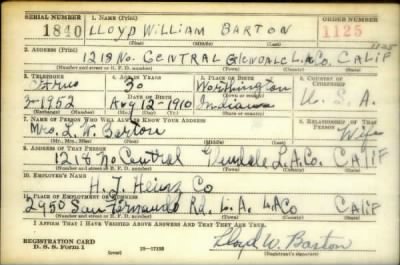 SERIAL NUMBER
1. NAME (Print)
ORDER NUMBER
1840
LLOYD WILLIAM BARTON
1125
(First) (Middle) (Last)
2. ADDRESS (Print)
1125
1218 No. CENTRAL GLENDALE L.A.Co. CALIF
(Number and street or R. F. D. number) (Town) (County) (State)
3. TELEPHONE
4. AGE IN YEARS
5. PLACE OF BIRTH
6. COUNTRY OF CITIZENSHIP
30
Worthington
DATE OF BIRTH
(Town or county)
3-1952
Aug 12-1910
Indiana
U. S. A.
(Exchange) (No.)
(Mo.) (Day) (Yr.)
(State or country)
7. NAME OF PERSON WHO WILL ALWAYS KNOW YOUR ADDRESS
8. RELATIONSHIP OF THAT PERSON
Mrs. L. W. Barton
Wife
(Mr., Mrs., Miss) (First) (Middle) (Last)
9. ADDRESS OF THAT PERSON
1218 No Central Glendale L.A.Co. CALIF
(Number and street or R. F. D. number) (Town) (County) (State)
10. EMPLOYER'S NAME
H. J. Heinz Co
11. PLACE OF EMPLOYMENT OR BUSINESS
2950 San Fernando Rd. L.A. LACo CALIF
(Number and street or R. F. D. number) (Town) (County) (State)
I AFFIRM THAT I HAVE VERIFIED ABOVE ANSWERS AND THAT THEY ARE TRUE.
REGISTRATION CARD
D. S. S. Form 1
16-17105
(over)
Lloyd W. Barton
(Registrant's signature)